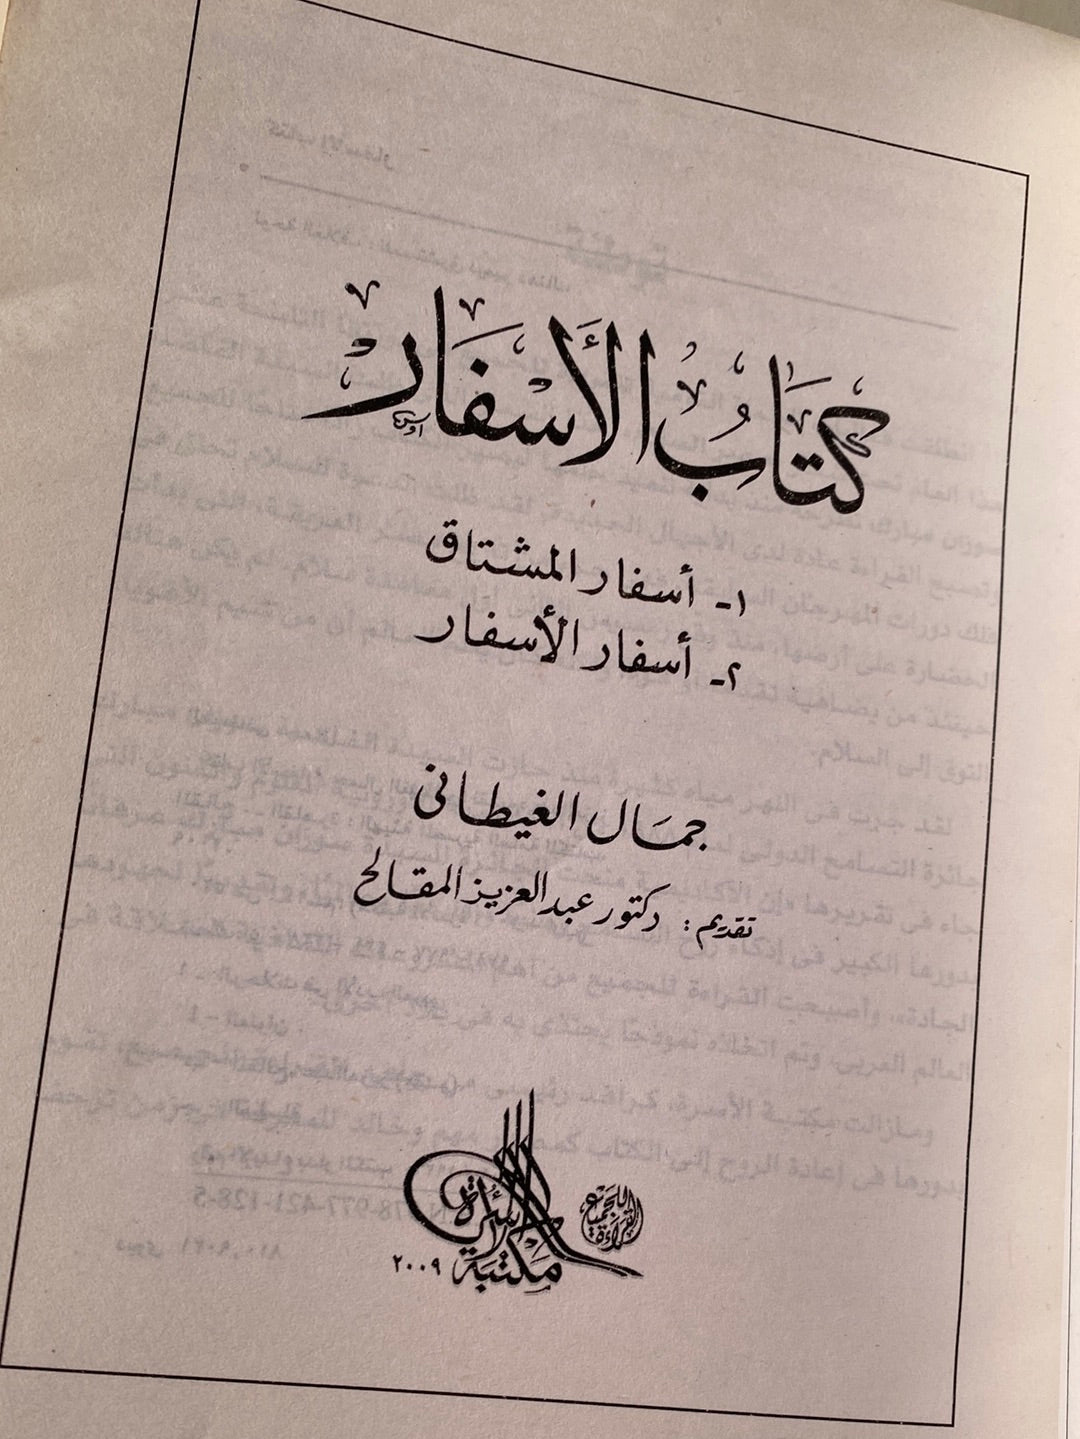 كتابُ الأسفار
١- أسفار المشتاق
٢- أسفار الأسفار
جمال الغيطانى
تقديم: دكتور عبد العزيز المقالح
القراءة للجميع
مكتبة الأسرة
٢٠٠٩